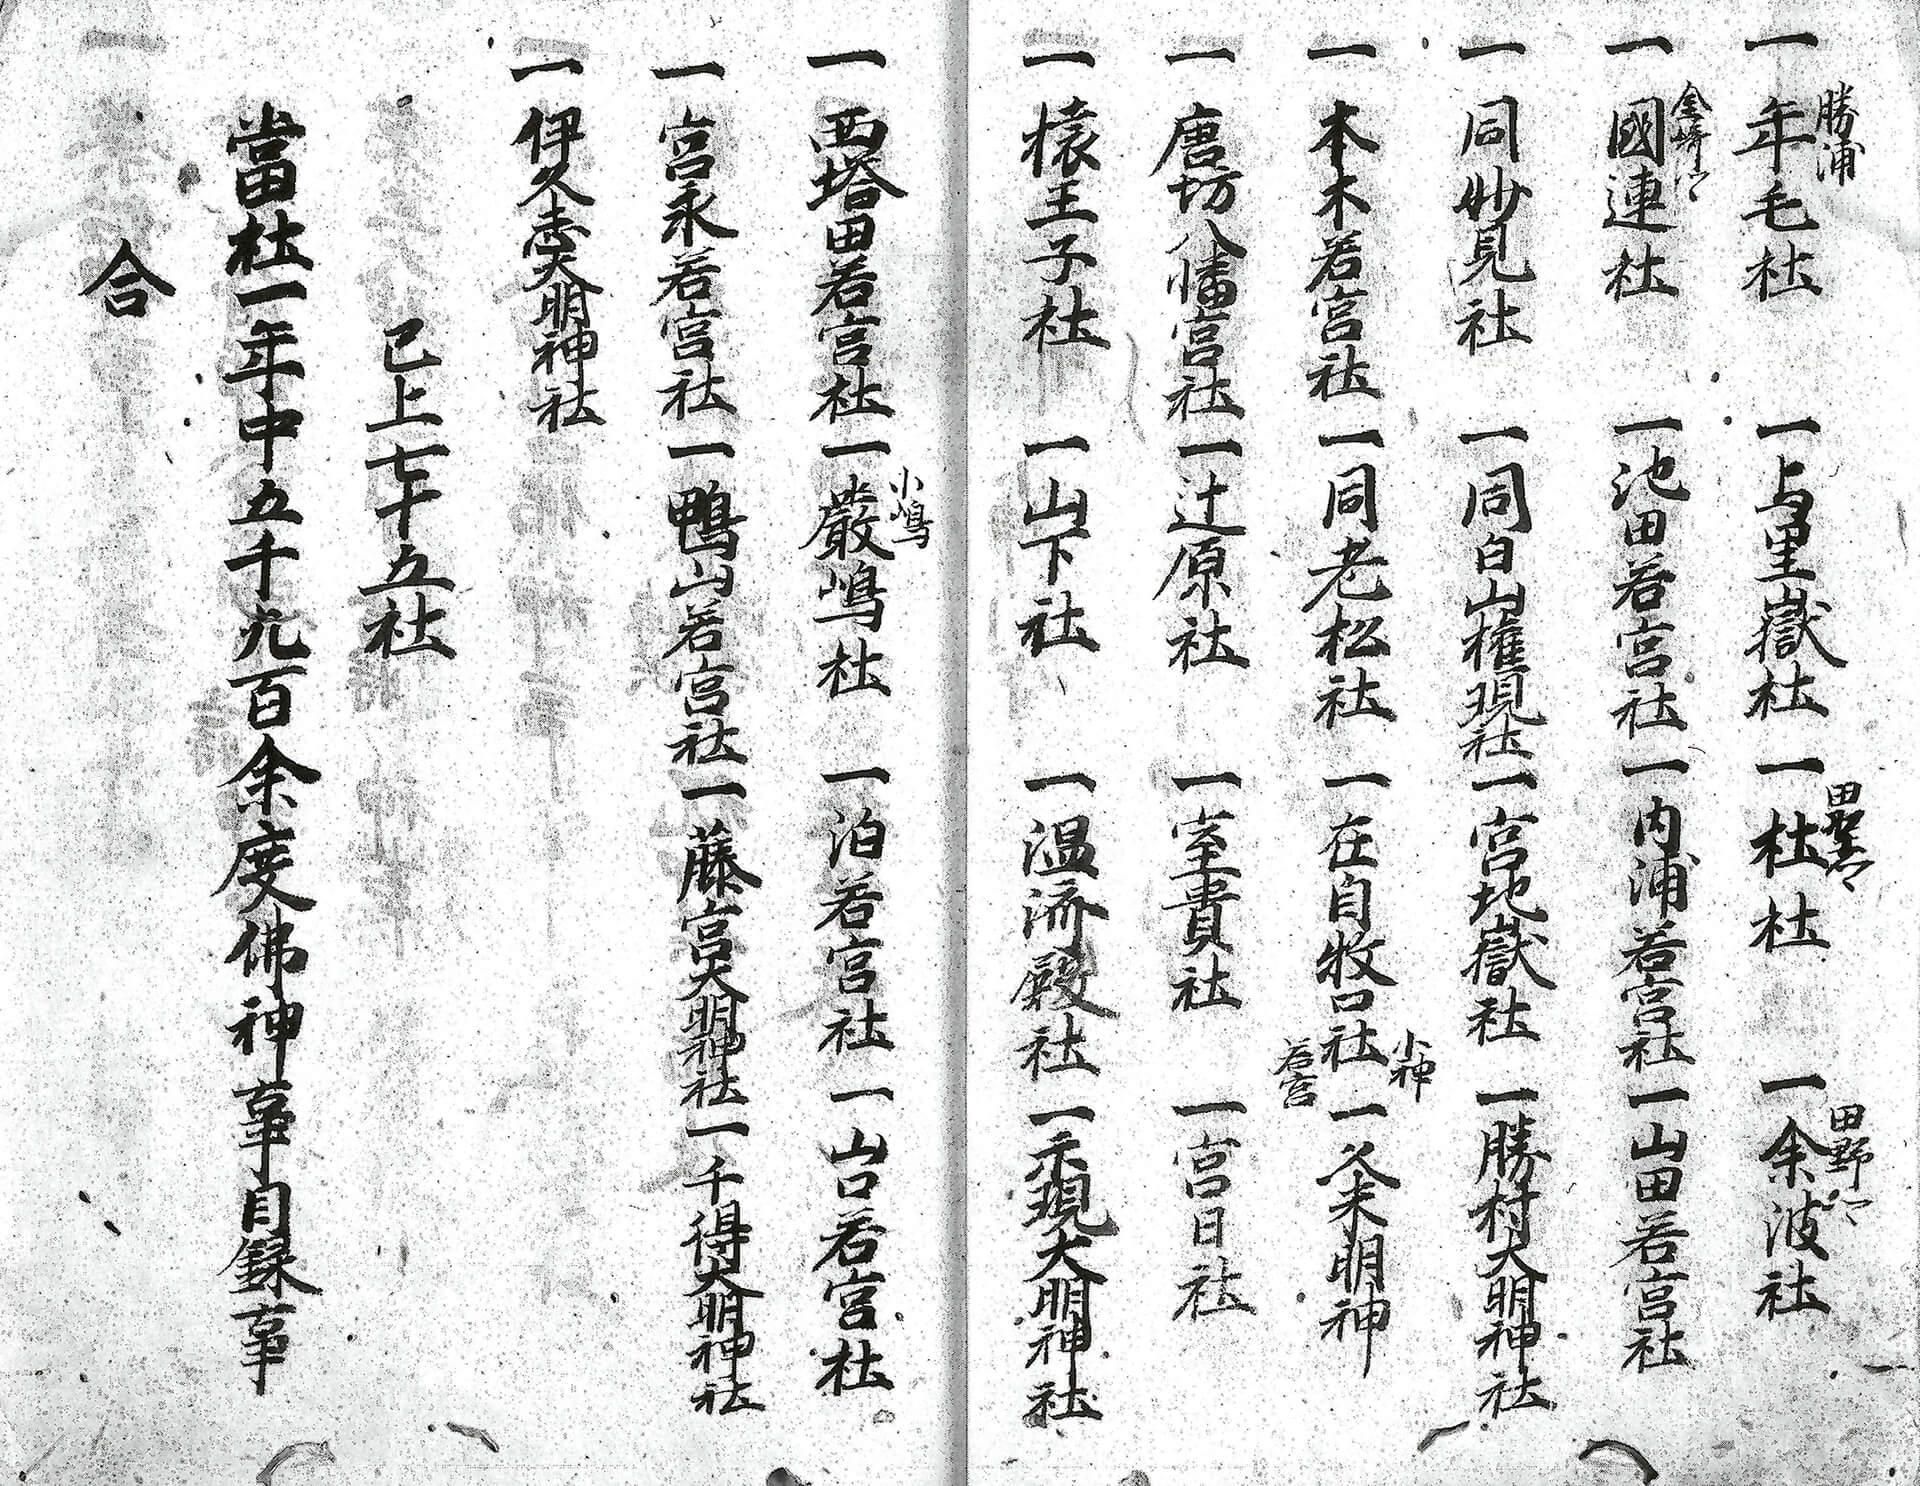 勝浦
一 年毛社 一 与里嶽社 一 社社 一 余波社
田野
一 國連社 一 池田若宮社 一 内浦若宮社 一 山田若宮社
一 同妙見社 一 同白山権現社 一 宮地嶽社 一 勝村大明神社
一 本木若宮社 一 同老松社 一 在自牧口社 一 久末明神
小神
若宮
一 唐坊八幡宮社 一 辻原社 一 室貴社 一 宮日社
一 猿王子社 一 山下社 一 温済殿社 一 示現大明神社
一 西塔田若宮社 一 嚴嶋社 一 泊若宮社 一 山口若宮社
小嶋
一 宮永若宮社 一 鴨山若宮社 一 藤宮大明神社 一 千得大明神社
一 伊久志大明神社
已上七十五社
當社一年中五千九百余度佛神事目録事
合